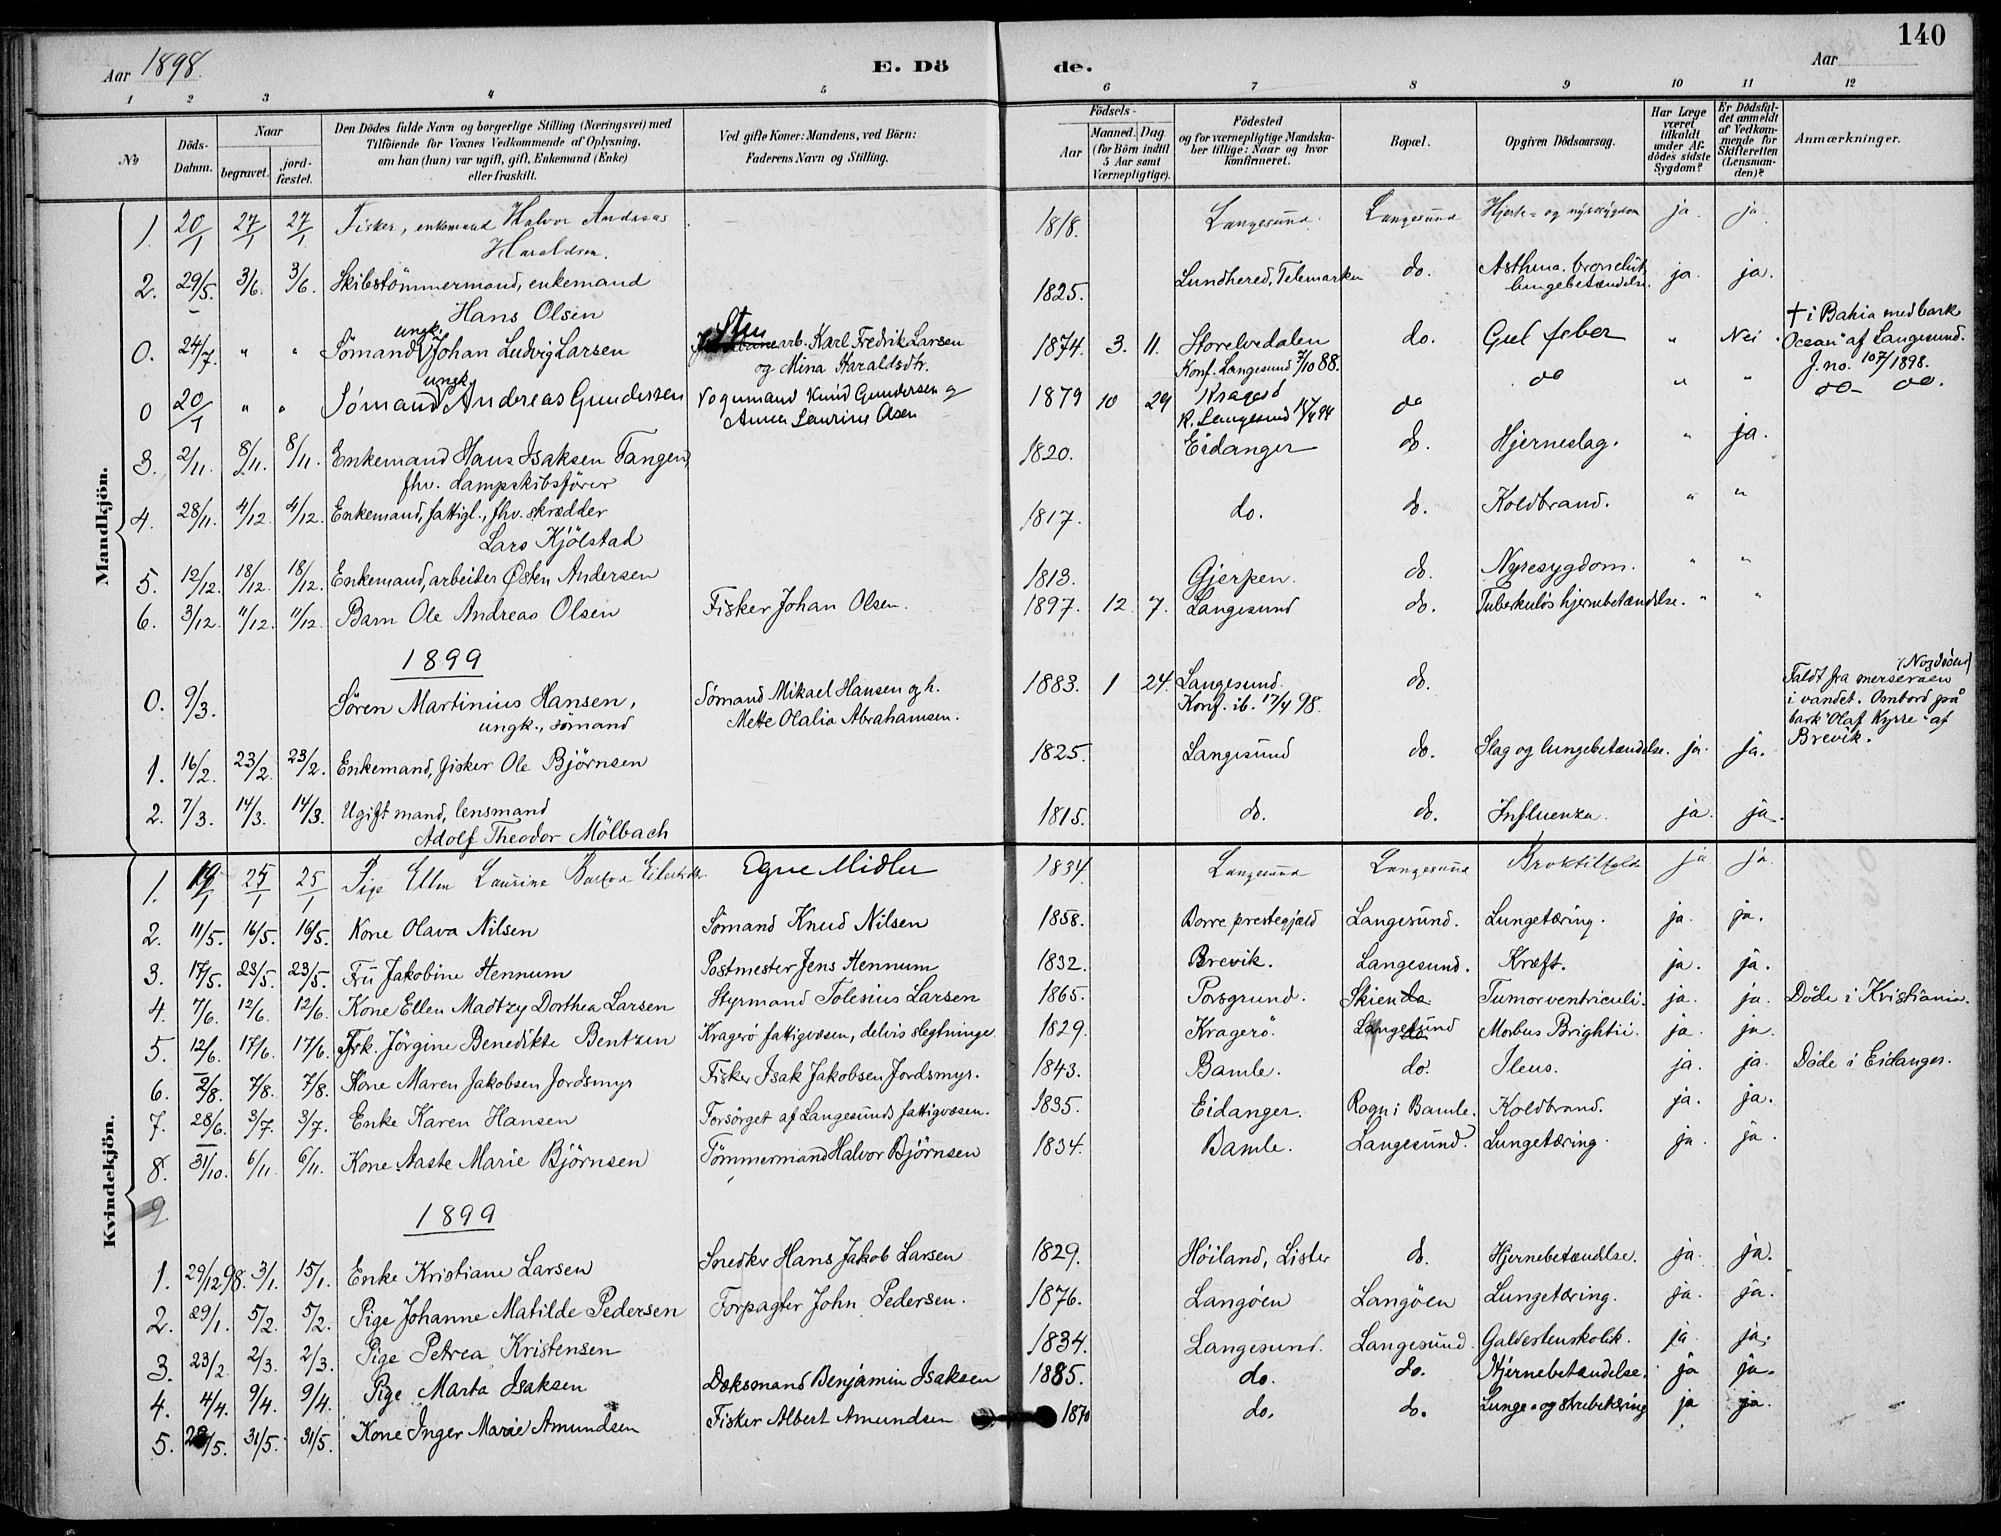 140
Aar 1898.
E. Dö
de.
Aar
1 2 3 4 5 6 7 8 9 10 11 12
No
Döds-Datum.
Naar
begravet.
jord-fæstet.
Den Dödes fulde Navn og borgerlige Stilling (Næringsvei) med
Tilföiende for Voxnes Vedkommende af Oplysning,
om han (hun) var ugift, gift, Enkemand (Enke)
eller fraskilt.
Ved gifte Koner: Mandens, ved Börn:
Faderens Navn og Stilling.
Födsels-
Aar
Maaned. Dag.
(for Börn indtil
5 Aar samt
Værnepligtige).
Födested
og for værnepligtige Mandska-
ber tillige: Naar og hvor
konfirmeret.
Bopæl.
Opgiven Dödsaarsag.
Har Læge
været
tilkaldt
under Af-
dödes sidste
Sygdom?
Er Dödsfal-
det anmeldt
af Vedkom-
mende for
Skifteretten
(Lensman-
den)?
Anmærkninger.
Mandkjön.
1. 20/1 27/1 27/1 Fisker, enkemand Halvor Andreas 1818. Langesund. Langesund Hjerte- og nyresygdom ja. ja
Haraldsen.
2. 29/5. 3/6. 3/6. Skibstømmermand, enkemand 1825. Lundhered, Telemarken do. Asthma. bronchit. ja. ja.
Hans Olsen lungebetændelse.
0. 24/7. " " Sømand ungk. Johan Ludvig Larsen arb. Karl Fredrik Larsen 1874. 3. 11. Storelvedalen do. Guel feber " Nei. † i Bahia med bark
og Mina Haraldsdtr. Konf. Langesund 7/10 88. Ocean" af Langesund.
J.no. 107/1898.
0 20/1 " " Sømand ungk. Andreas Gundersen Vognmand Knud Gundersen og 1879 10 29 Kragerø do do " " do- do.
Anna Laurine Olsen K. Langesund
3. 2/11. 8/11. 8/11. Enkemand Hans Isaksen Tangen, 1820. Eidanger do. Hjerneslag. " ja.
fhv. dampskibsfører
4. 28/11. 4/12. 4/12. Enkemand, fattigl., fhv. skrædder 1817. do. do. Koldbrand. " "
Lars Kjölstad
5. 12/12. 18/12. 18/12. Enkemand, arbeider Østen Andersen 1813. Gjerpen. do. Nyresygdom. " "
6. 3/12. 11/12. 11/12. Barn Ole Andreas Olsen Fisker Johan Olsen. 1897. 12. 7. Langesund do. Tuberkuløs hjernebetændelse. " "
1899
0. 9/3. Sören Martinius Hansen, Sømand Mikael Hansen og h. 1883. 1 24. Langesund. do. Faldt fra merseraaen (Nordsöen)
ungk., sömand Mette Olalia Abrahamsen. Konf. ib. 17/4 98. i vandet. Ombord på
bark "Olaf Kyrre" af
Brevik.
1. 16/2. 23/2. 23/2. Enkemand, fisker Ole Björnsen 1825. Langesund do. Slag og lungebetændelse. ja. ja.
2. 7/3. 14/3. 14/3. Ugift mand, lensmand 1815. do. do. Influenza. ja. ja.
Adolf Theodor Mölbach
Kvindekjön.
1. 19/1 25/1 25/1 Pige Ellen Laurine Egne Midler 1834. Langesund Langesund Broktilfelde ja ja.
2. 11/5. 16/5. 16/5. Kone Olava Nilsen Sömand Knud Nilsen 1858. Borre prestegjæld Langesund. Lungetæring. ja. ja.
3. 17/5. 23/5. 23/5. Frü Jakobine Hennum Postmester Jens Hennum 1832. Brevik. Langesund. Kræft. ja. ja.
4. 7/6. 12/6. 12/6. Kone Ellen Madtzy Dorthea Larsen Styrmand Tolesius Larsen 1865. Porsgrund. Skien do Tumor ventriculi. ja. ja. Döde i Kristiania.
5. 12/6. 17/6. 17/6. Frk. Jörgine Benedikte Bentzen Kragerö fattigvæsen, delvis slegtninge. 1829. Kragerö. Langesund do. Morbus Brightii. ja. ja.
6. 2/8. 7/8. 7/8. Kone Maren Jakobsen Jordsmyr Fisker Isak Jakobsen Jordsmyr. 1843. Bamle. do. Ileus. ja. ja. Döde i Eidanger.
7. 28/6. 3/7. 3/7. Enke Karen Hansen Forsörget af Langesunds fattigvæsen. 1835. Eidanger. Rogn i Bamle. Koldbrand. ja. ja.
8. 31/10. 6/11. 6/11. Kone Aaste Marie Björnsen Tömmermand Halvor Björnsen 1834. Bamle. Langesund. Lungetæring. ja. ja.
9
1899
1. 29/12 98. 3/1. 15/1. Enke Kristiane Larsen Snedker Hans Jakob Larsen 1829. Höiland, Lister do. Hjernebetændelse. ja. ja.
2. 29/1. 5/2. 5/2. Pige Johanne Matilde Pedersen Forpagter John Pedersen. 1876. Langöen Langöen Lungetæring. ja. ja.
3. 23/2. 2/3. 2/3. Pige Petrea Kristensen 1834. Langesund. Langesund. Galdestenskolik. ja. ja.
4. 4/4. 9/4. 9/4. Pige Marta Isaksen Dæksmand Benjamin Isaksen 1885. do. do. Hjernebetændelse. ja ja.
5. 28/5. 31/5. 31/5. Kone Inger Marie Amundsen Fisker Albert Amundsen 1870 do. do. Lunge- og strubetæring ja ja.